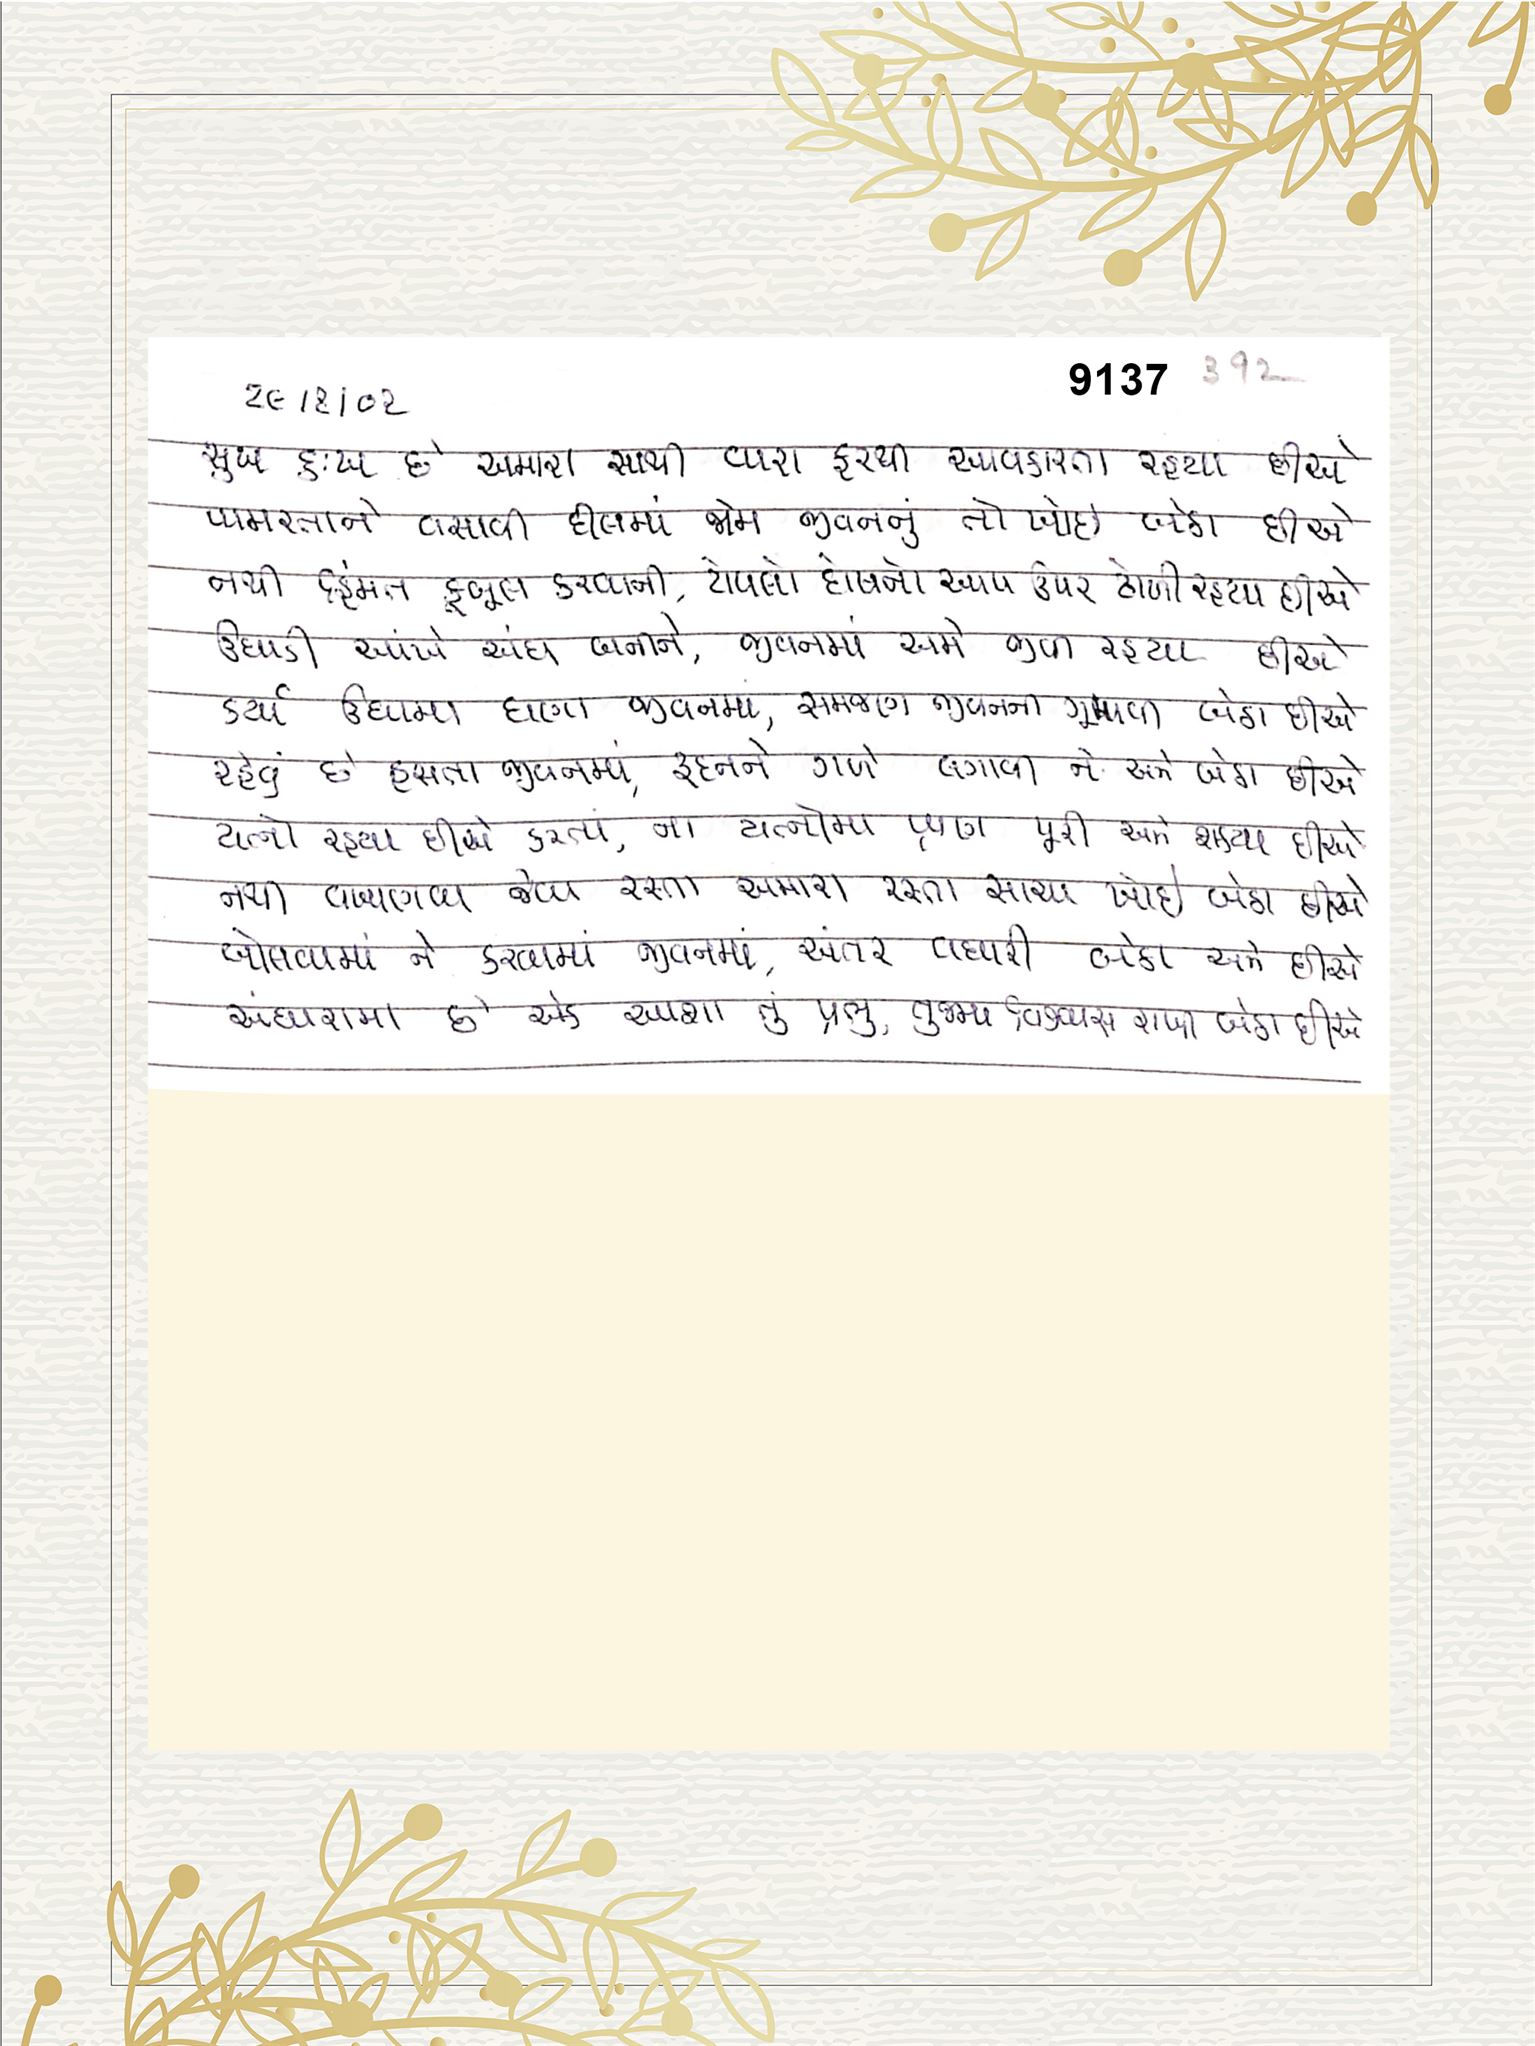 9137 ૩૧૨
૨૯/૨/૦૨
સુખ દુઃખ છે અમારા સાથી વારા ફરથી આવકારતા રહ્યા છીએ
પામરતાને વસાવી દીલમાં જોમ જીવનનું તો ખોઈ બેઠા છીએ
નથી હિંમત કબૂલ કરવાની, ટોપલો દોષનો આપ ઉપર ઢોળી રહ્યા છીએ
ઉઘાડી આંખે અંધ બનીને, જીવનમાં અમે જીવી રહ્યા છીએ
કર્યા ઉધામા ઘણા જીવનમાં, સમજણ જીવનની ગૂમાવી બેઠા છીએ
રહેવું છે હસતા જીવનમાં, રૂદનને ગળે લગાવી ને અમે બેઠા છીએ
યત્નો રહ્યા છીએ કરતાં, ના યત્નોમાં પ્રાણ પૂરી અમે શક્યા છીએ
નથી વખાણવા જેવા રસ્તા અમારા રસ્તા સાચા ખોઈ બેઠા છીએ
બોલવામાં ને કરવામાં જીવનમાં, અંતર વધારી બેઠા અમે છીએ
અંધારામા છે એક આશા તું પ્રભુ, તુજમા વિશ્વાસ રાખી બેઠા છીએ